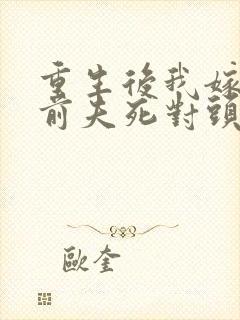 重生後我嫁
前夫死對頭
歐奎